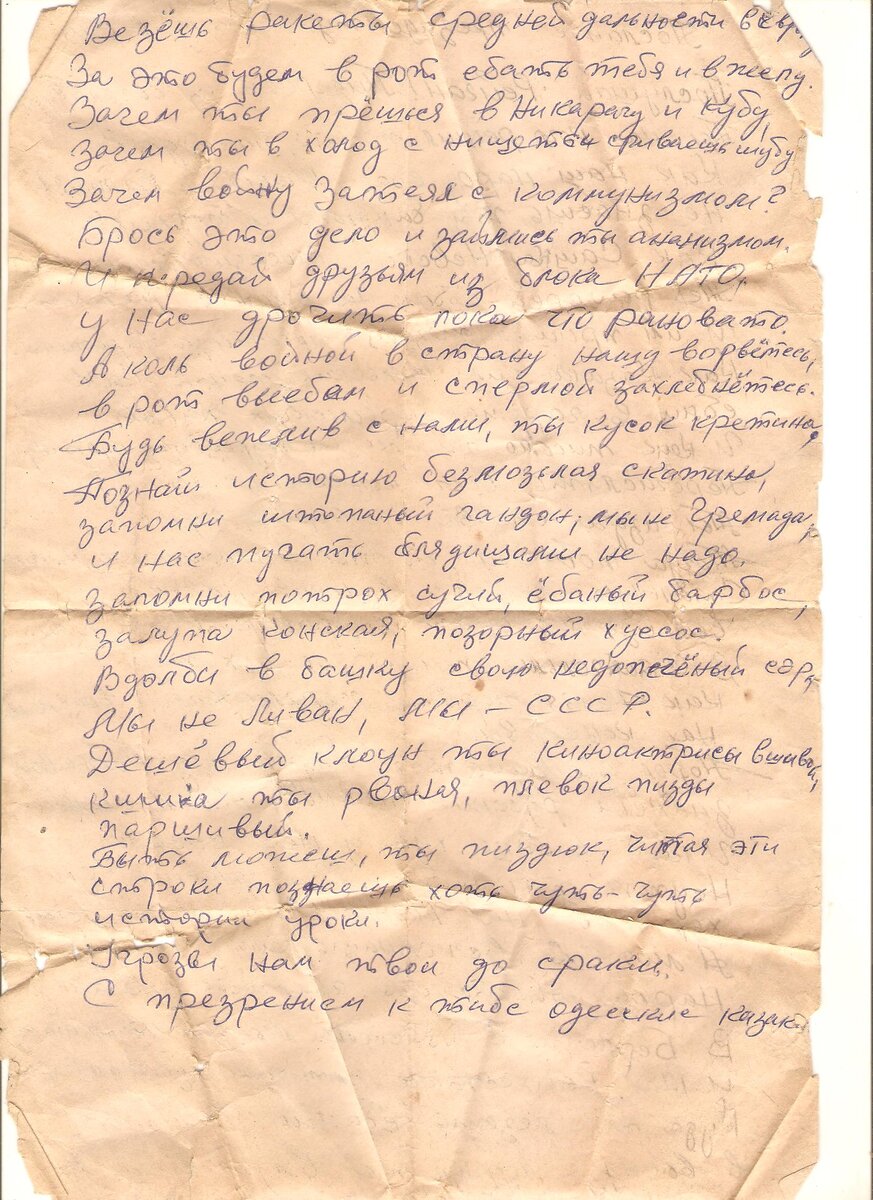 Везёшь ракеты средней дальности в Евр
За это будем в рот ебать тебя и в жопу.
Зачем ты прёшься в Никарагу и Кубу,
Зачем ты в холод с нищеты срываешь шубу
Зачем войну затеял с коммунизмом?
Брось это дело и займись ты ананизмом.
И передай друзьям из блока НАТО,
у нас дрочить пока что рановато.
А коль войной в страну нашу ворвётесь,
в рот выебам и спермой захлебнётесь.
Будь вежлив с нами, ты кусок кретина,
Познай историю безмозглая скатина,
запомни штопаный гандон, мы не Гренада,
и нас пугать блядищами не надо.
запомни потрох сучий, ёбаный барбос,
залупа конская, позорный хуесос.
Вдолби в башку свою недопечёный сэр,
Мы не Ливан, мы - СССР.
Дешёвый клоун ты киноактрисы вшивой,
кишка ты рваная, плевок пизды
паршивый.
Быть можеш, ты пиздюк, читая эти
строки познаешь хоть чуть-чуть
истории уроки.
Угрозы нам твои до сраки.
С презрением к тибе одесские казаки